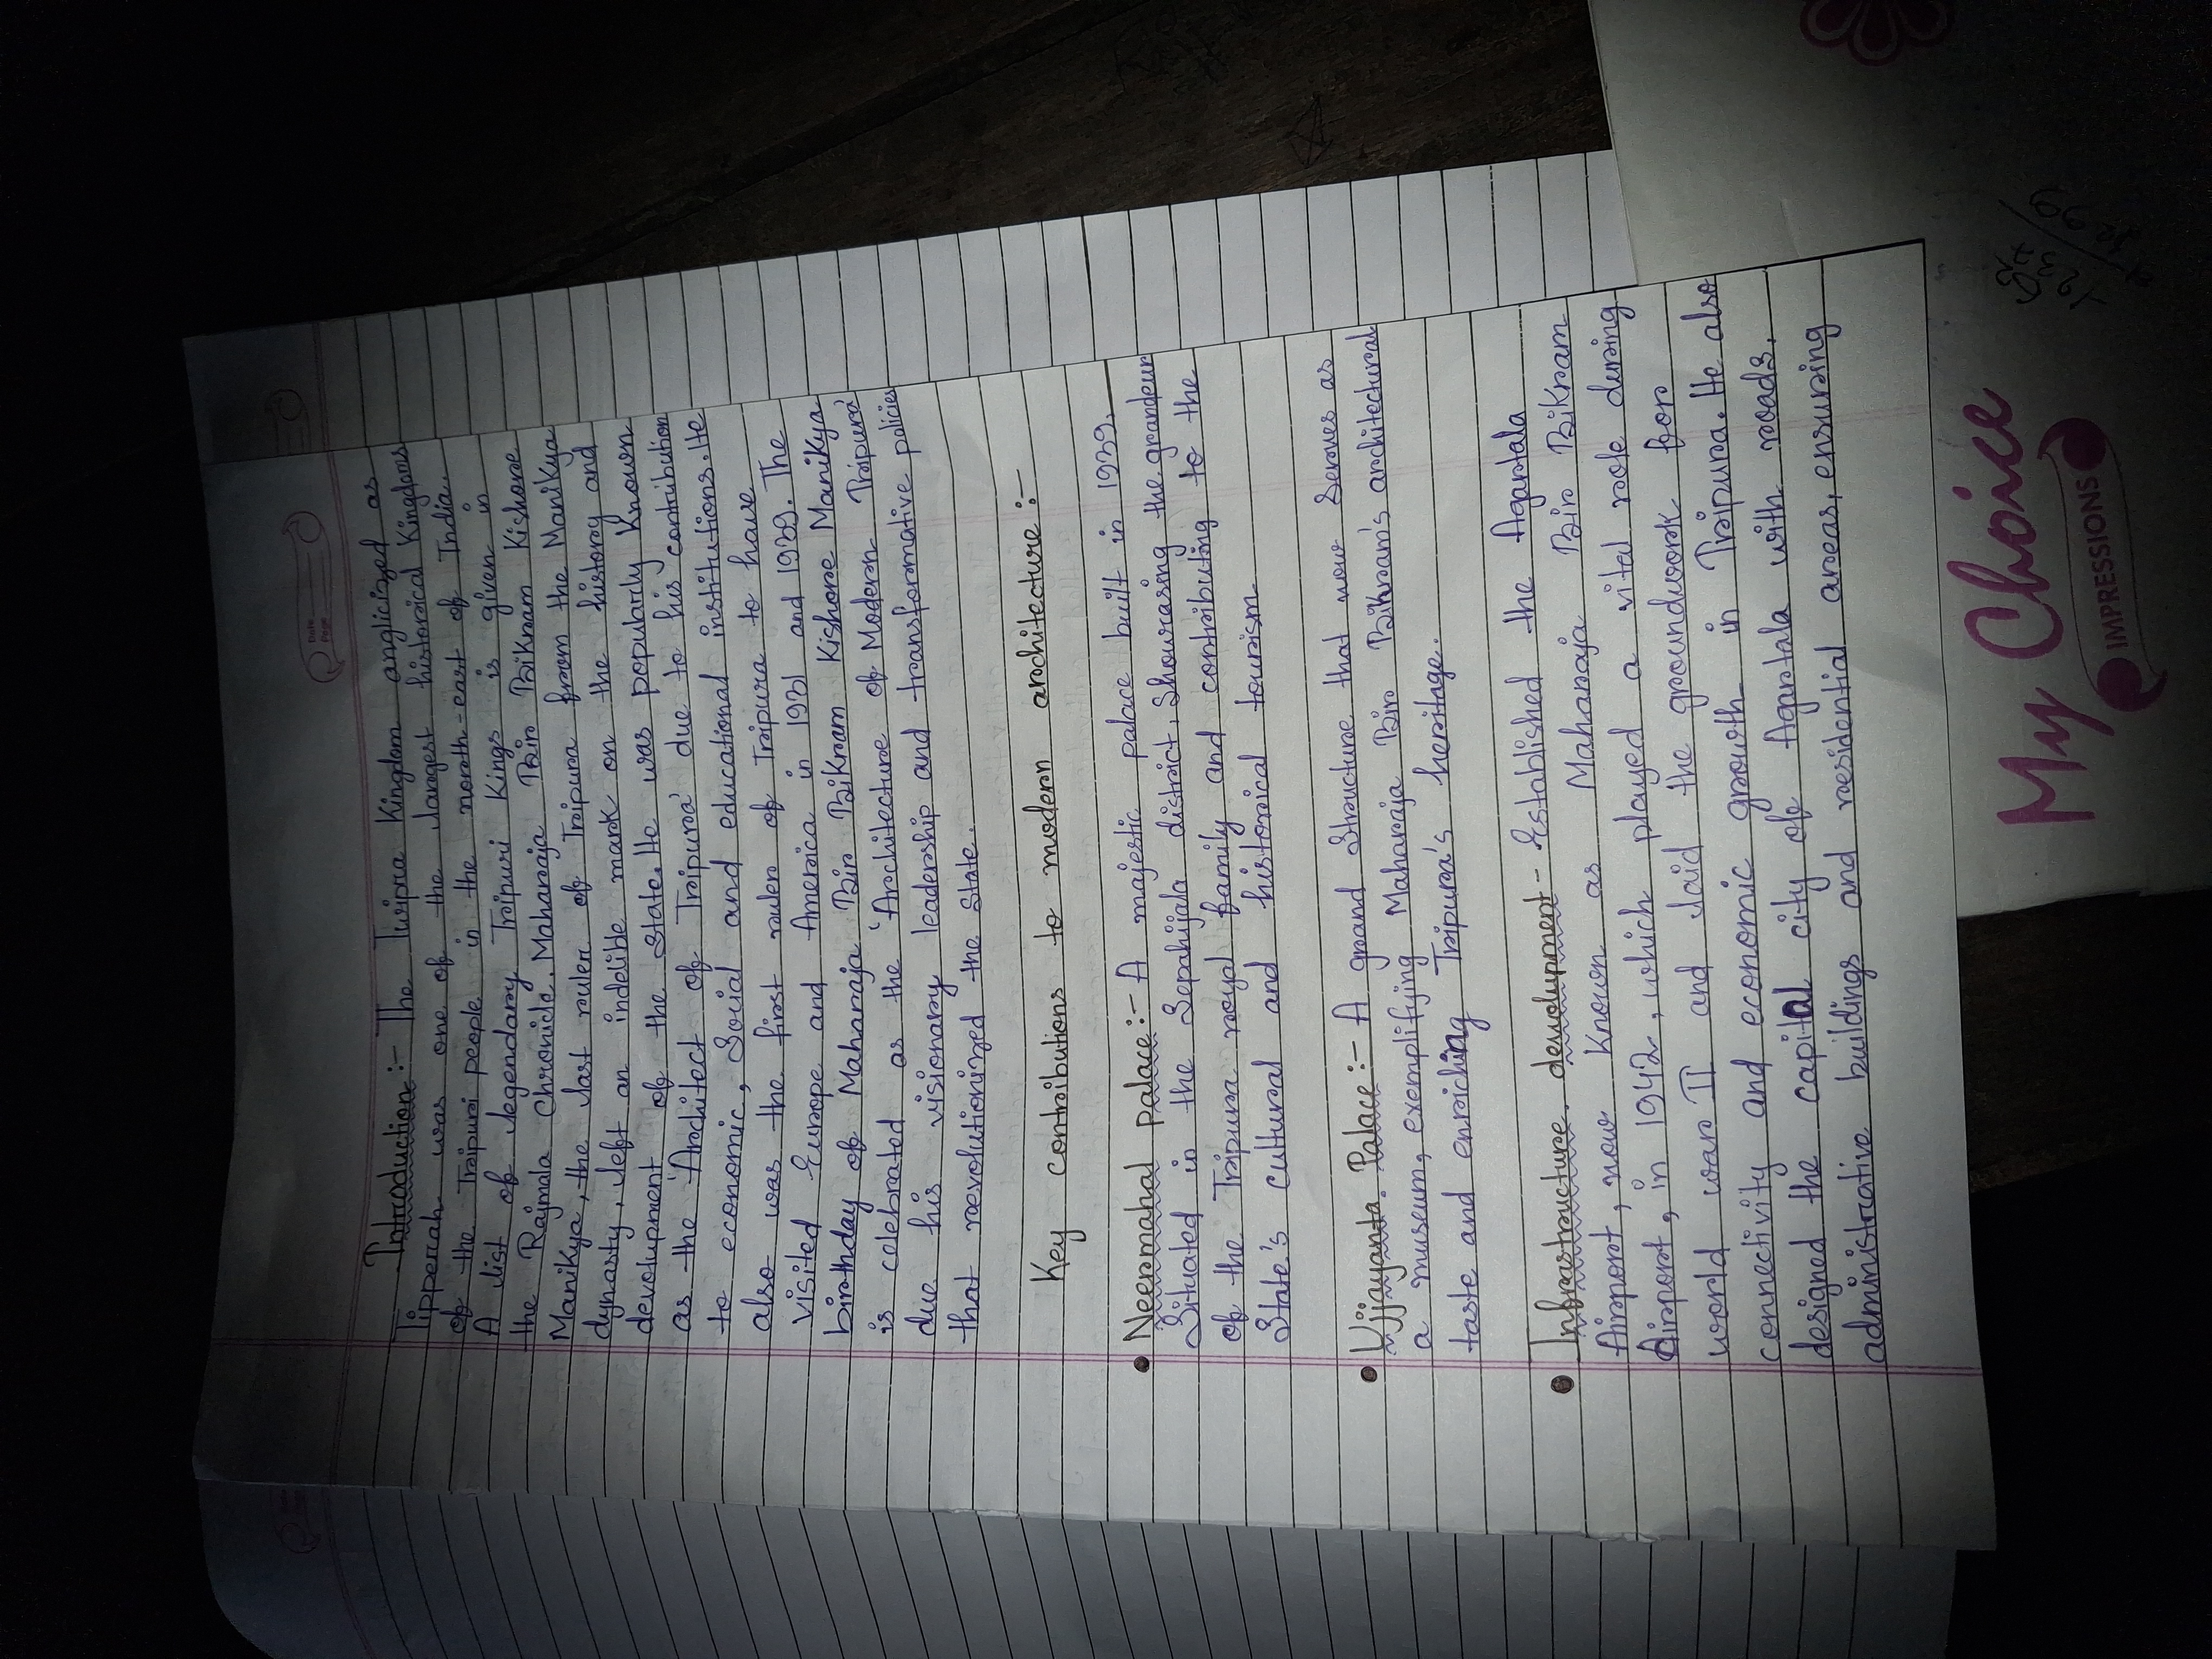 Date
Page
Introduction :- The Twipra Kingdom anglicized as
Tipperah was one of the largest historical Kingdoms
of the Tripuri people in the north-east of India.
A list of legendary Tripuri Kings is given in
the Rajmala Chronicle. Maharaja Bir Bikram Kishore
Manikya, the last ruler of Tripura from the Manikya
dynasty, left an indelible mark on the history and
devolupment of the State. He was popularly Known
as the 'Architect of Tripura' due to his contribution
to economic, Social and educational institutions. He
also was the first ruler of Tripura to have
visited Europe and America in 1931 and 1939. The
birthday of Maharaja Bir Bikram Kishore Manikya
is celebrated as the 'Architecture of Modern Tripura'
due his visionary leadership and transformative policies
that revolutionized the State.
Key contributions to modern architecture :-
• Neermahal palace :- A majestic palace built in 1939.
Situated in the Sepahijala district. Showcasing the grandeur
of the Tripura royal family and contributing to the
State's cultural and historical tourism.
• Ujjayanta Palace :- A grand Structure that now Serves as
a museum, exemplifying Maharaja Bir Bikram's architectural
taste and enriching Tripura's heritage.
• Infrastructure devolupment - Established the Agartala
Airport, now Known as Maharaja Bir Bikram
Airport, in 1942, which played a vital role during
world war II and laid the groundwork for
connectivity and economic growth in Tripura. He also
designed the capital city of Agartala with roads,
administrative buildings and residential areas, ensuring
My Choice
IMPRESSIONS